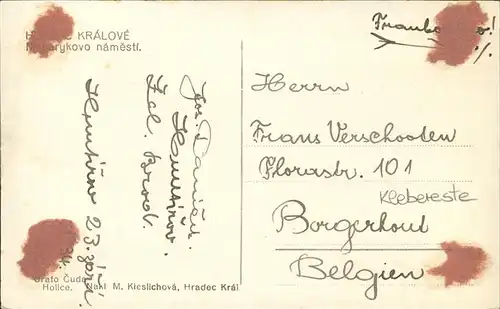 KRÁLOVÉ
Masarykovo náměstí.
Jos. Daníček
Humtířov
Žel. Brod
Humtířov 23. září
Herrn
Frans Verschooten
Florastr. 101
Klebereste
Borgerhout
Belgien
Grafo Čuda
Holice. Nakl M. Kieslichová, Hradec Král